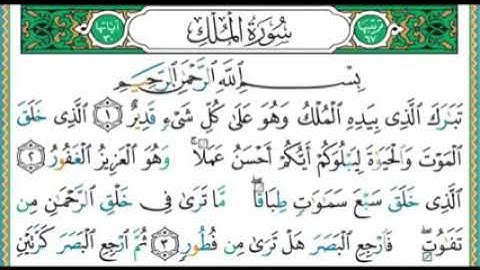 ترتيبها ٦٧ سُورَةُ الْمُلْكِ آياتها ٣٠
بِسْمِ ٱللَّهِ ٱلرَّحْمَٰنِ ٱلرَّحِيمِ
تَبَٰرَكَ ٱلَّذِى بِيَدِهِ ٱلْمُلْكُ وَهُوَ عَلَىٰ كُلِّ شَىْءٍ قَدِيرٌ ١ ٱلَّذِى خَلَقَ
ٱلْمَوْتَ وَٱلْحَيَوٰةَ لِيَبْلُوَكُمْ أَيُّكُمْ أَحْسَنُ عَمَلًا ۚ وَهُوَ ٱلْعَزِيزُ ٱلْغَفُورُ ٢
ٱلَّذِى خَلَقَ سَبْعَ سَمَٰوَٰتٍ طِبَاقًا ۖ مَّا تَرَىٰ فِى خَلْقِ ٱلرَّحْمَٰنِ مِن
تَفَٰوُتٍ ۖ فَٱرْجِعِ ٱلْبَصَرَ هَلْ تَرَىٰ مِن فُطُورٍ ٣ ثُمَّ ٱرْجِعِ ٱلْبَصَرَ كَرَّتَيْنِ